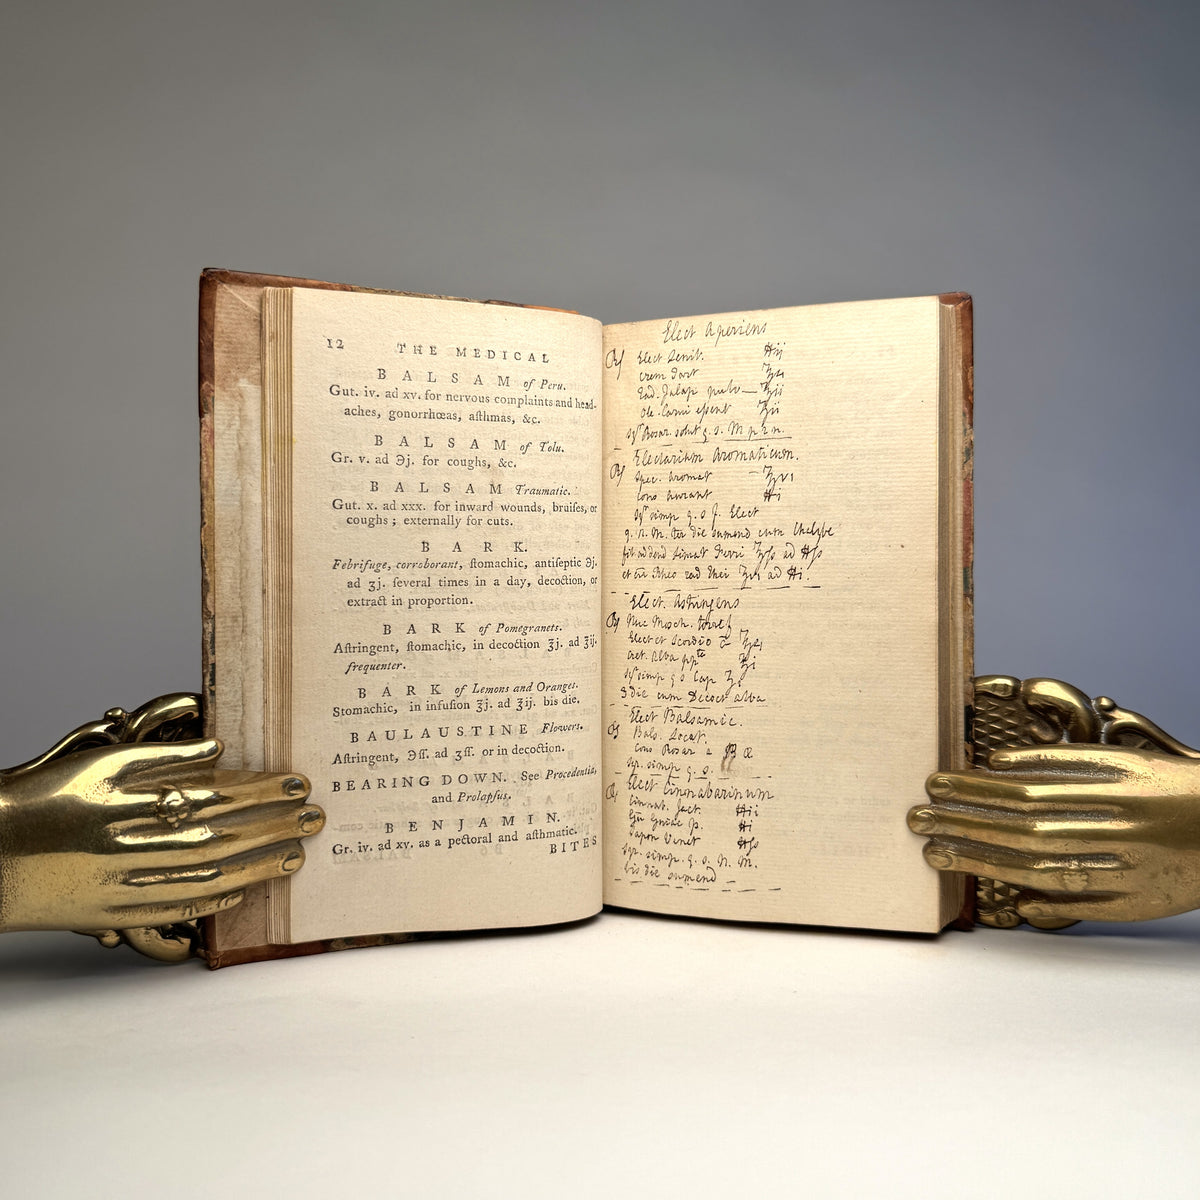 12 THE MEDICAL
BALSAM of Peru.
Gut. iv. ad xv. for nervous complaints and head-
aches, gonorrhœas, aſthmas, &c.
BALSAM of Tolu.
Gr. v. ad ℈j. for coughs, &c.
BALSAM Traumatic.
Gut. x. ad xxx. for inward wounds, bruiſes, or
coughs ; externally for cuts.
BARK.
Febrifuge, corroborant, ſtomachic, antiſeptic ℈j.
ad ʒj. ſeveral times in a day, decoction, or
extract in proportion.
BARK of Pomegranets.
Aſtringent, ſtomachic, in decoction ℥j. ad ℥ij.
frequenter.
BARK of Lemons and Oranges.
Stomachic, in infuſion ℥j. ad ℥ij. bis die.
BAULAUSTINE Flowers.
Aſtringent, ℈ſſ. ad ʒſſ. or in decoction.
BEARING DOWN. See Procedentia,
and Prolapſus.
BENJAMIN.
Gr. iv. ad xv. as a pectoral and aſthmatic.
BITES
Elect Aperiens
Elect Lenit.
Crem Tart
Rad. Jalap pulv
Ole. Carui essent
Syr Rosar. solut q. s. M
Electarium Aromaticum.
Spec. Aromat
Cons Aurant
Syr simp q. s f. Elect
q. n. m. ter die sumend cum Chalybe
ad
ad
Elect. Astringens
Nuc Mosch.
Elect et Scordio
Cret. Alba ppte
Syr simp q s Cap
3 die cum Decoct alba
Elect Balsamic.
Bals. Locat.
Cons Rosar a
Syr. simp q. s.
Elect Cinnabarinum
Cinnab. fact.
Gu Guiac p.
Sapon Venet
Syr. simp. q. s. N. M.
bis die sumend